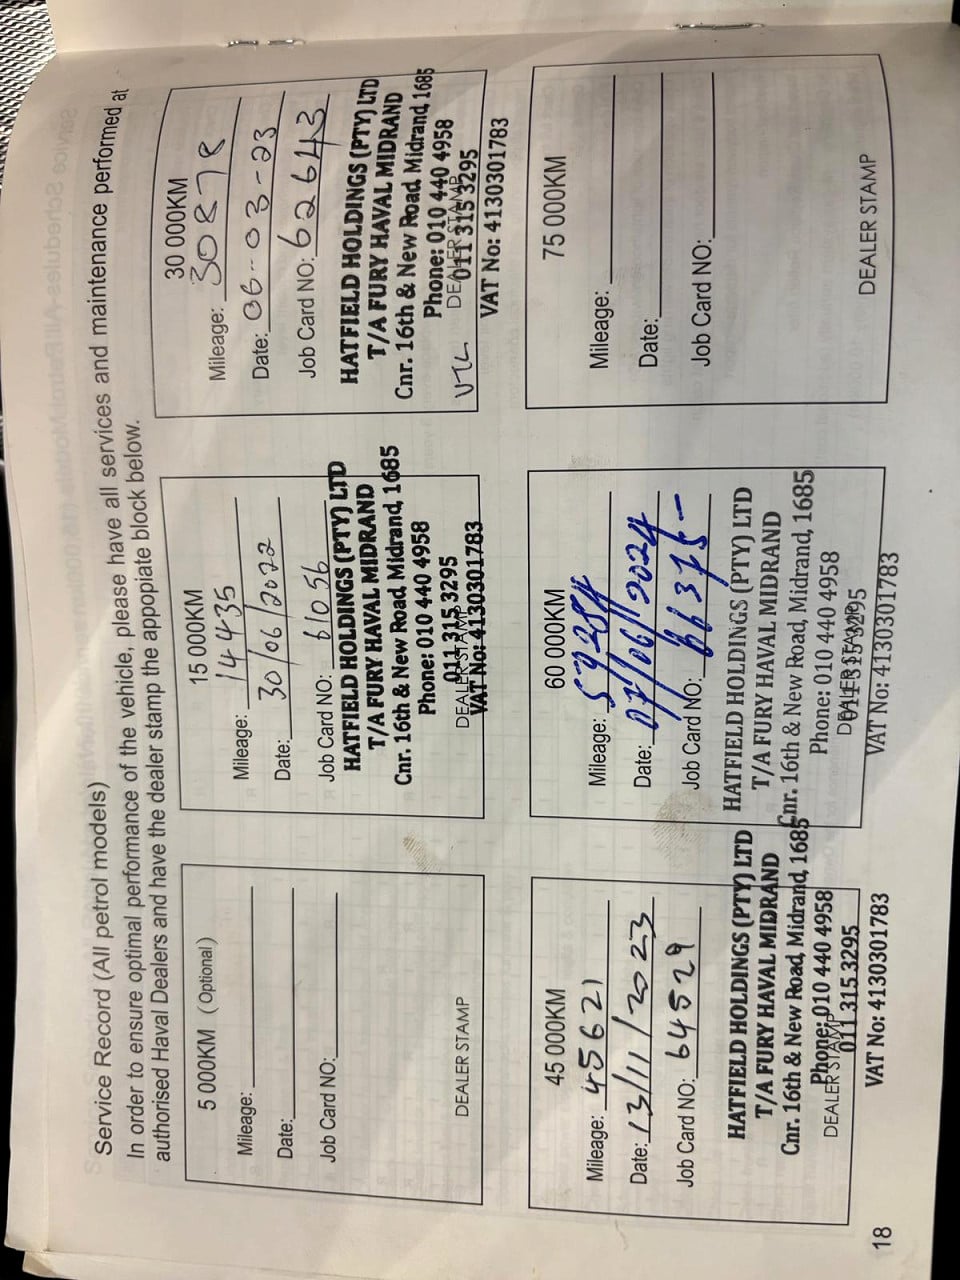 Service Record (All petrol models)
In order to ensure optimal performance of the vehicle, please have all services and maintenance performed at
authorised Haval Dealers and have the dealer stamp the appopiate block below.
5 000KM (Optional)
Mileage:
Date:
Job Card NO:
DEALER STAMP
15 000KM
Mileage: 14435
Date: 30/06/2022
Job Card NO: 61056
HATFIELD HOLDINGS (PTY) LTD
T/A FURY HAVAL MIDRAND
Cnr. 16th & New Road, Midrand, 1685
Phone: 010 440 4958
011 315 3295
DEALER STAMP
VAT No: 4130301783
30 000KM
Mileage: 30878
Date: 06-03-23
Job Card NO: 62643
HATFIELD HOLDINGS (PTY) LTD
T/A FURY HAVAL MIDRAND
Cnr. 16th & New Road, Midrand, 1685
Phone: 010 440 4958
DEALER STAMP
011 315 3295
VAT No: 4130301783
45 000KM
Mileage: 45621
Date: 13/11/2023
Job Card NO: 64529
HATFIELD HOLDINGS (PTY) LTD
T/A FURY HAVAL MIDRAND
Cnr. 16th & New Road, Midrand, 1685
Phone: 010 440 4958
DEALER STAMP
011 315 3295
VAT No: 4130301783
60 000KM
Mileage:
Date: 07/06/2024
Job Card NO:
HATFIELD HOLDINGS (PTY) LTD
T/A FURY HAVAL MIDRAND
Cnr. 16th & New Road, Midrand, 1685
Phone: 010 440 4958
DEALER STAMP
011 315 3295
VAT No: 4130301783
75 000KM
Mileage:
Date:
Job Card NO:
DEALER STAMP
18